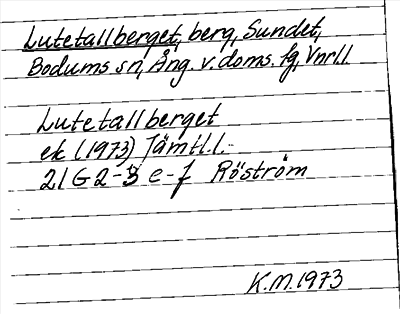 Lutetallberget, berg, Sundet,
Bodums sn, Ång. v. doms. fg, Vnrl.l
Lutetallberget
ek (1973) Jämtl.l.
21G2-3 e-f Röström
K.M.1973